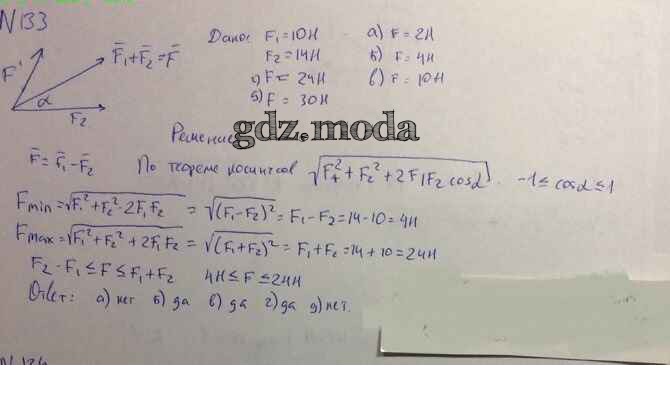 N133
F₁
F̄₁+F̄₂=F̄
α
F₂
Дано: F₁=10H
F₂=14H
а) F=2H
б) F=4H
в) F=10H
г) F=24H
F=30H
Решение
gdz.moda
F̄=F̄₁-F̄₂ По теореме косинусов √F₁²+F₂²+2F₁F₂cosα. -1≤cosα≤1
Fmin=√F₁²+F₂²-2F₁F₂ = √(F₁-F₂)² = F₁-F₂=14-10=4H
Fmax=√F₁²+F₂²+2F₁F₂ = √(F₁+F₂)² = F₁+F₂=14+10=24H
F₂-F₁≤F≤F₁+F₂ 4H≤F≤24H
Ответ: а) нет б) да в) да г) да д) нет.